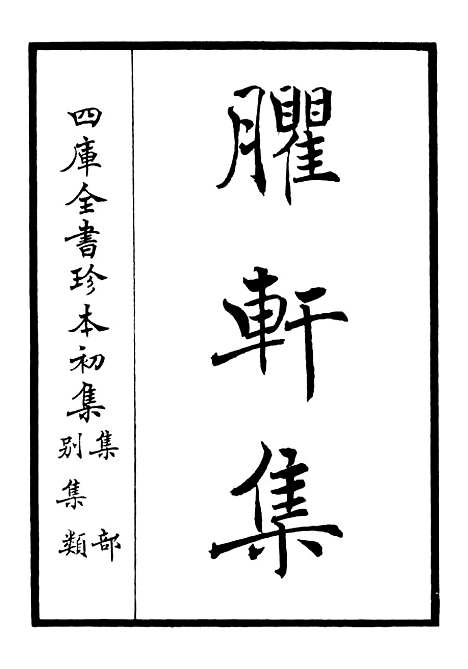 臞軒集
四庫全書珍本初集
集部
別集類